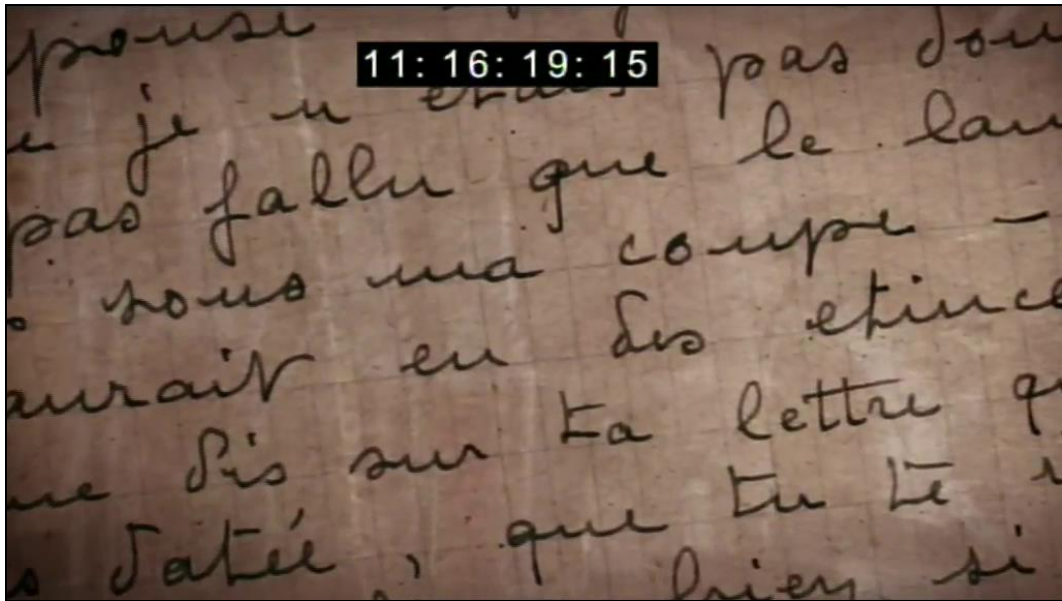 pouse
11: 16: 19: 15
je n etais pas dou
pas fallu que le lau
sous ma coupe -
aurait eu des etince
me dis sur ta lettre q
s datée, que tu te
bien si